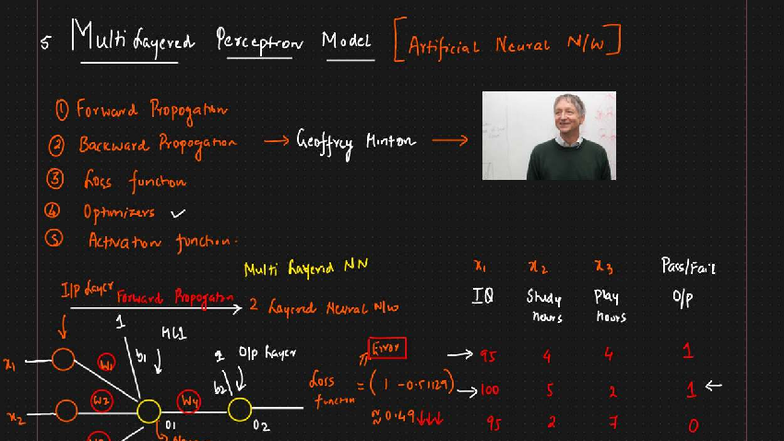 5 Multi Layered Perceptron Model [Artificial Neural N/w]
① Forward Propogation
② Backward Propogation → Geoffrey Hinton →
③ Loss function
④ Optimizers ✓
⑤ Activation function.
Multi Layered NN
x1 x2 x3 Pass/Fail
I/P Layer Forward Propogation → 2 Layered Neural N/w
IQ Study hours Play hours O/P
1 HL1
x1 w1 b1 2 O/P Layer
Error → 95 4 4 1
b2 Loss function = (1 - 0.51129) → 100 5 2 1 ←
x2 w2 w4
≈ 0.49 ↓↓↓ 95 2 7 0
O1 O2